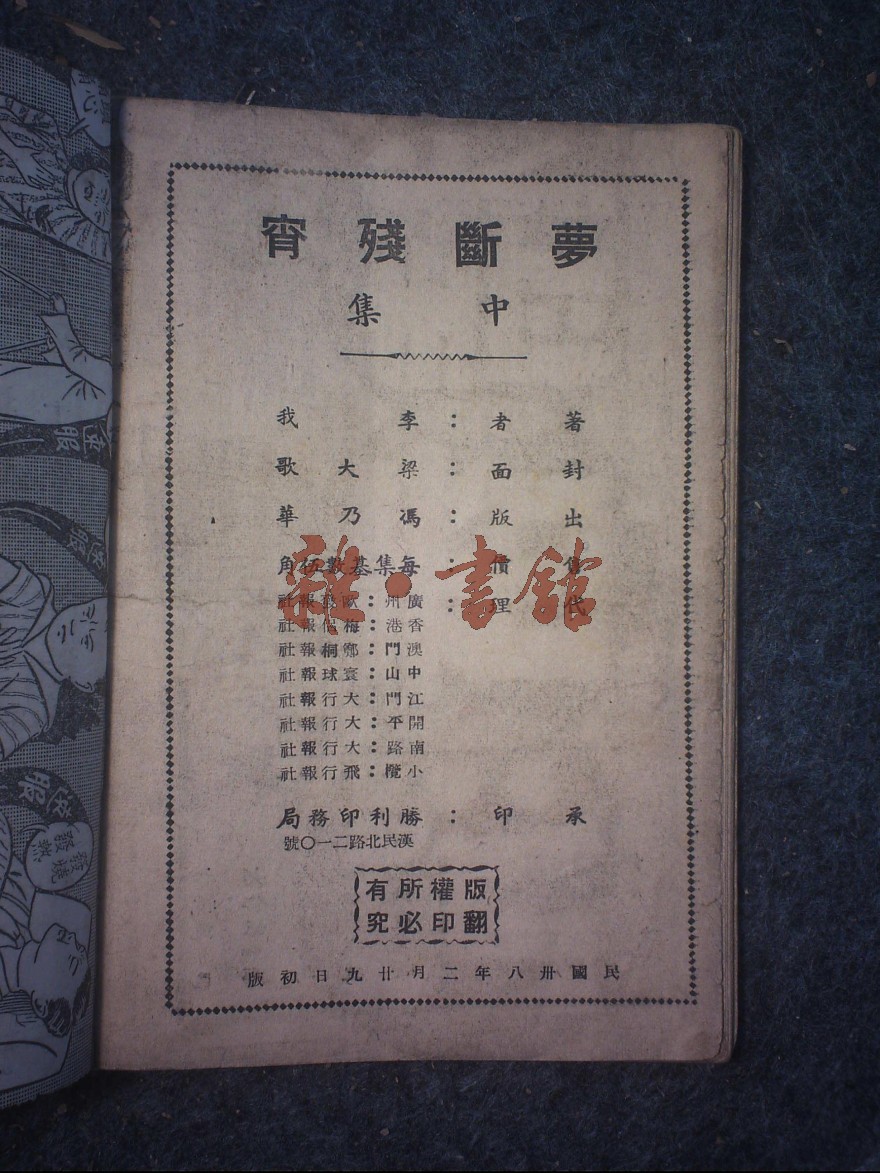 夢斷殘宵
中集
著者：李我
封面：梁大歌
出版：馮乃華
售價：每集基數伍角
代理：廣州：歐 報社
香港：梅 報社
澳門：鄭桐報社
中山：寰球報社
江門：大行報社
開平：大行報社
南路：大行報社
小欖：飛行報社
承印：勝利印務局
漢民北路二一〇號
版權所有
翻印必究
民國卅八年二月廿九日初版
雜·書館
服
發燒
發熱
服